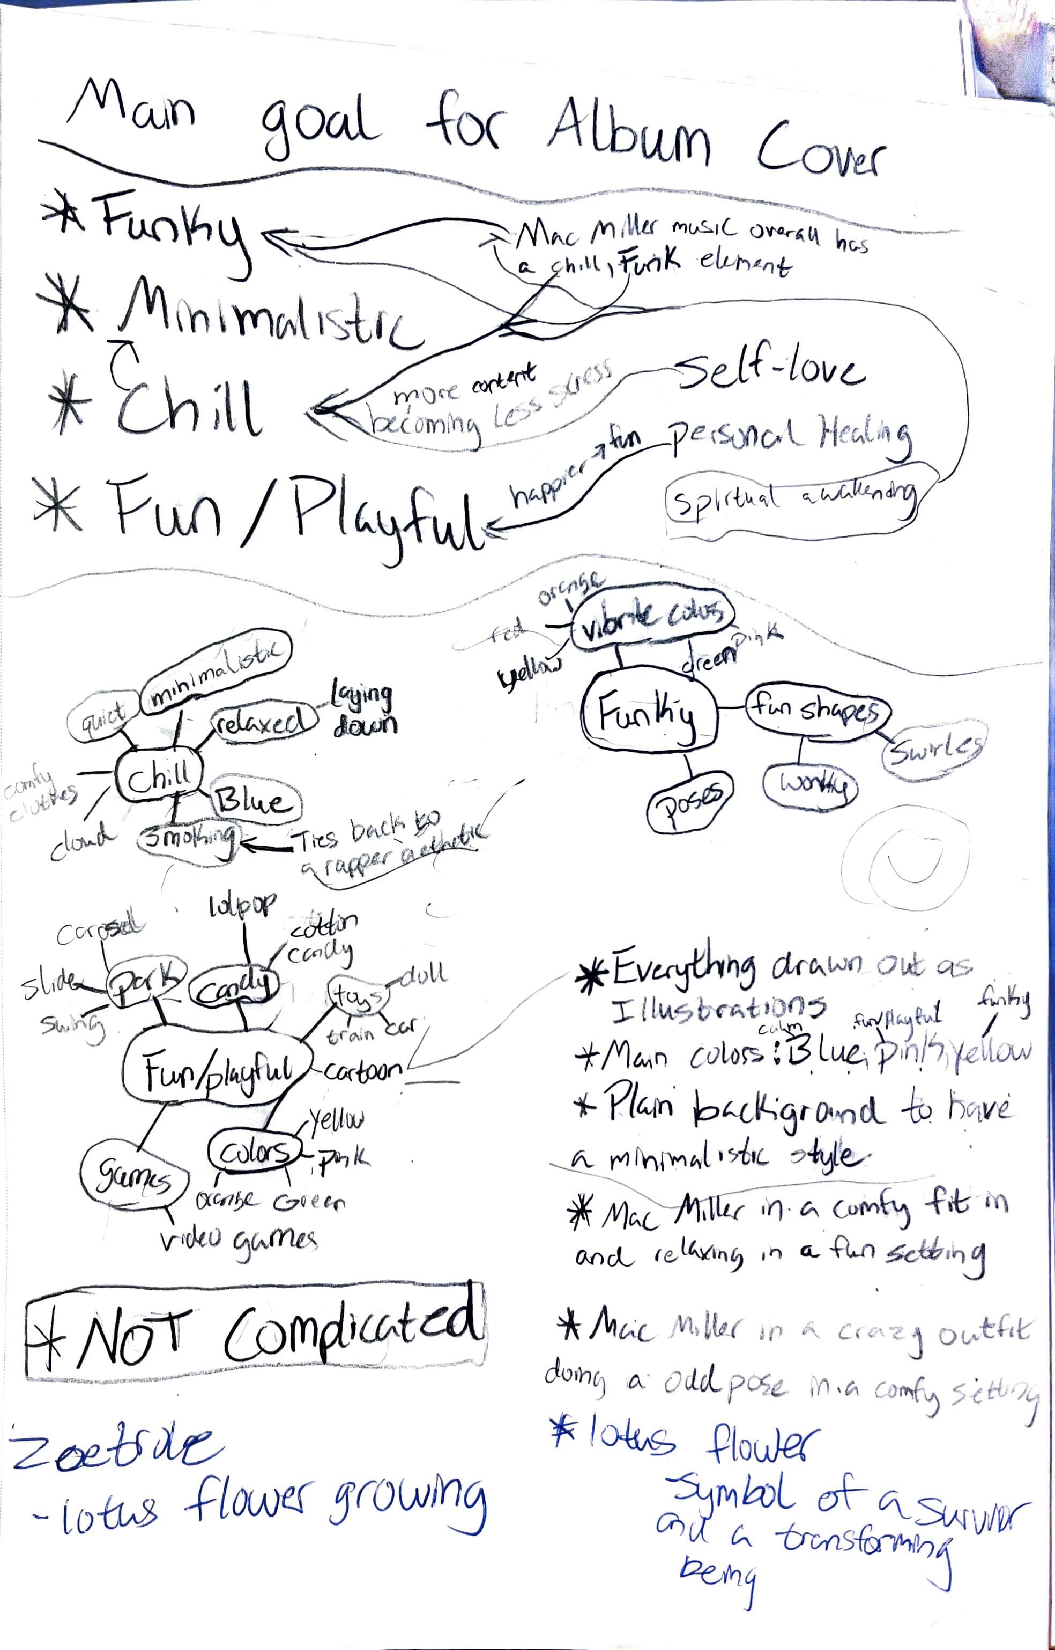 Main goal for Album Cover
* Funky
Mac Miller music overall has
a chill, Funk element
* Minimalistic
* Chill
more content
becoming less stress
Self-love
happier → fun
Personal Healing
Spirtual awakening
* Fun / Playful
orange
vibrate colors
red
yellow
green
pink
Funky
fun shapes
Swirles
wonky
poses
minimalistic
quiet
relaxed
laying
down
Chill
comfy
clothes
Blue
cloud
Smoking
Ties back to
a rapper aethetic
lolipop
carosel
cottin
candy
slide
park
candy
toys
doll
swing
train
car
Fun/playful
cartoon
yellow
colors
pink
games
orange
Green
video games
* Everything drawn out as
Illustrations
calm
fun/playful
funky
* Main colors: Blue, pink, yellow
* Plain background to have
a minimalistic style
* Mac Miller in a comfy fit in
and relaxing in a fun setting
* NOT Complicated
* Mac Miller in a crazy outfit
doing a odd pose in a comfy setting
- lotus flower growing
* lotus flower
Symbol of a surviver
and a transforming
being